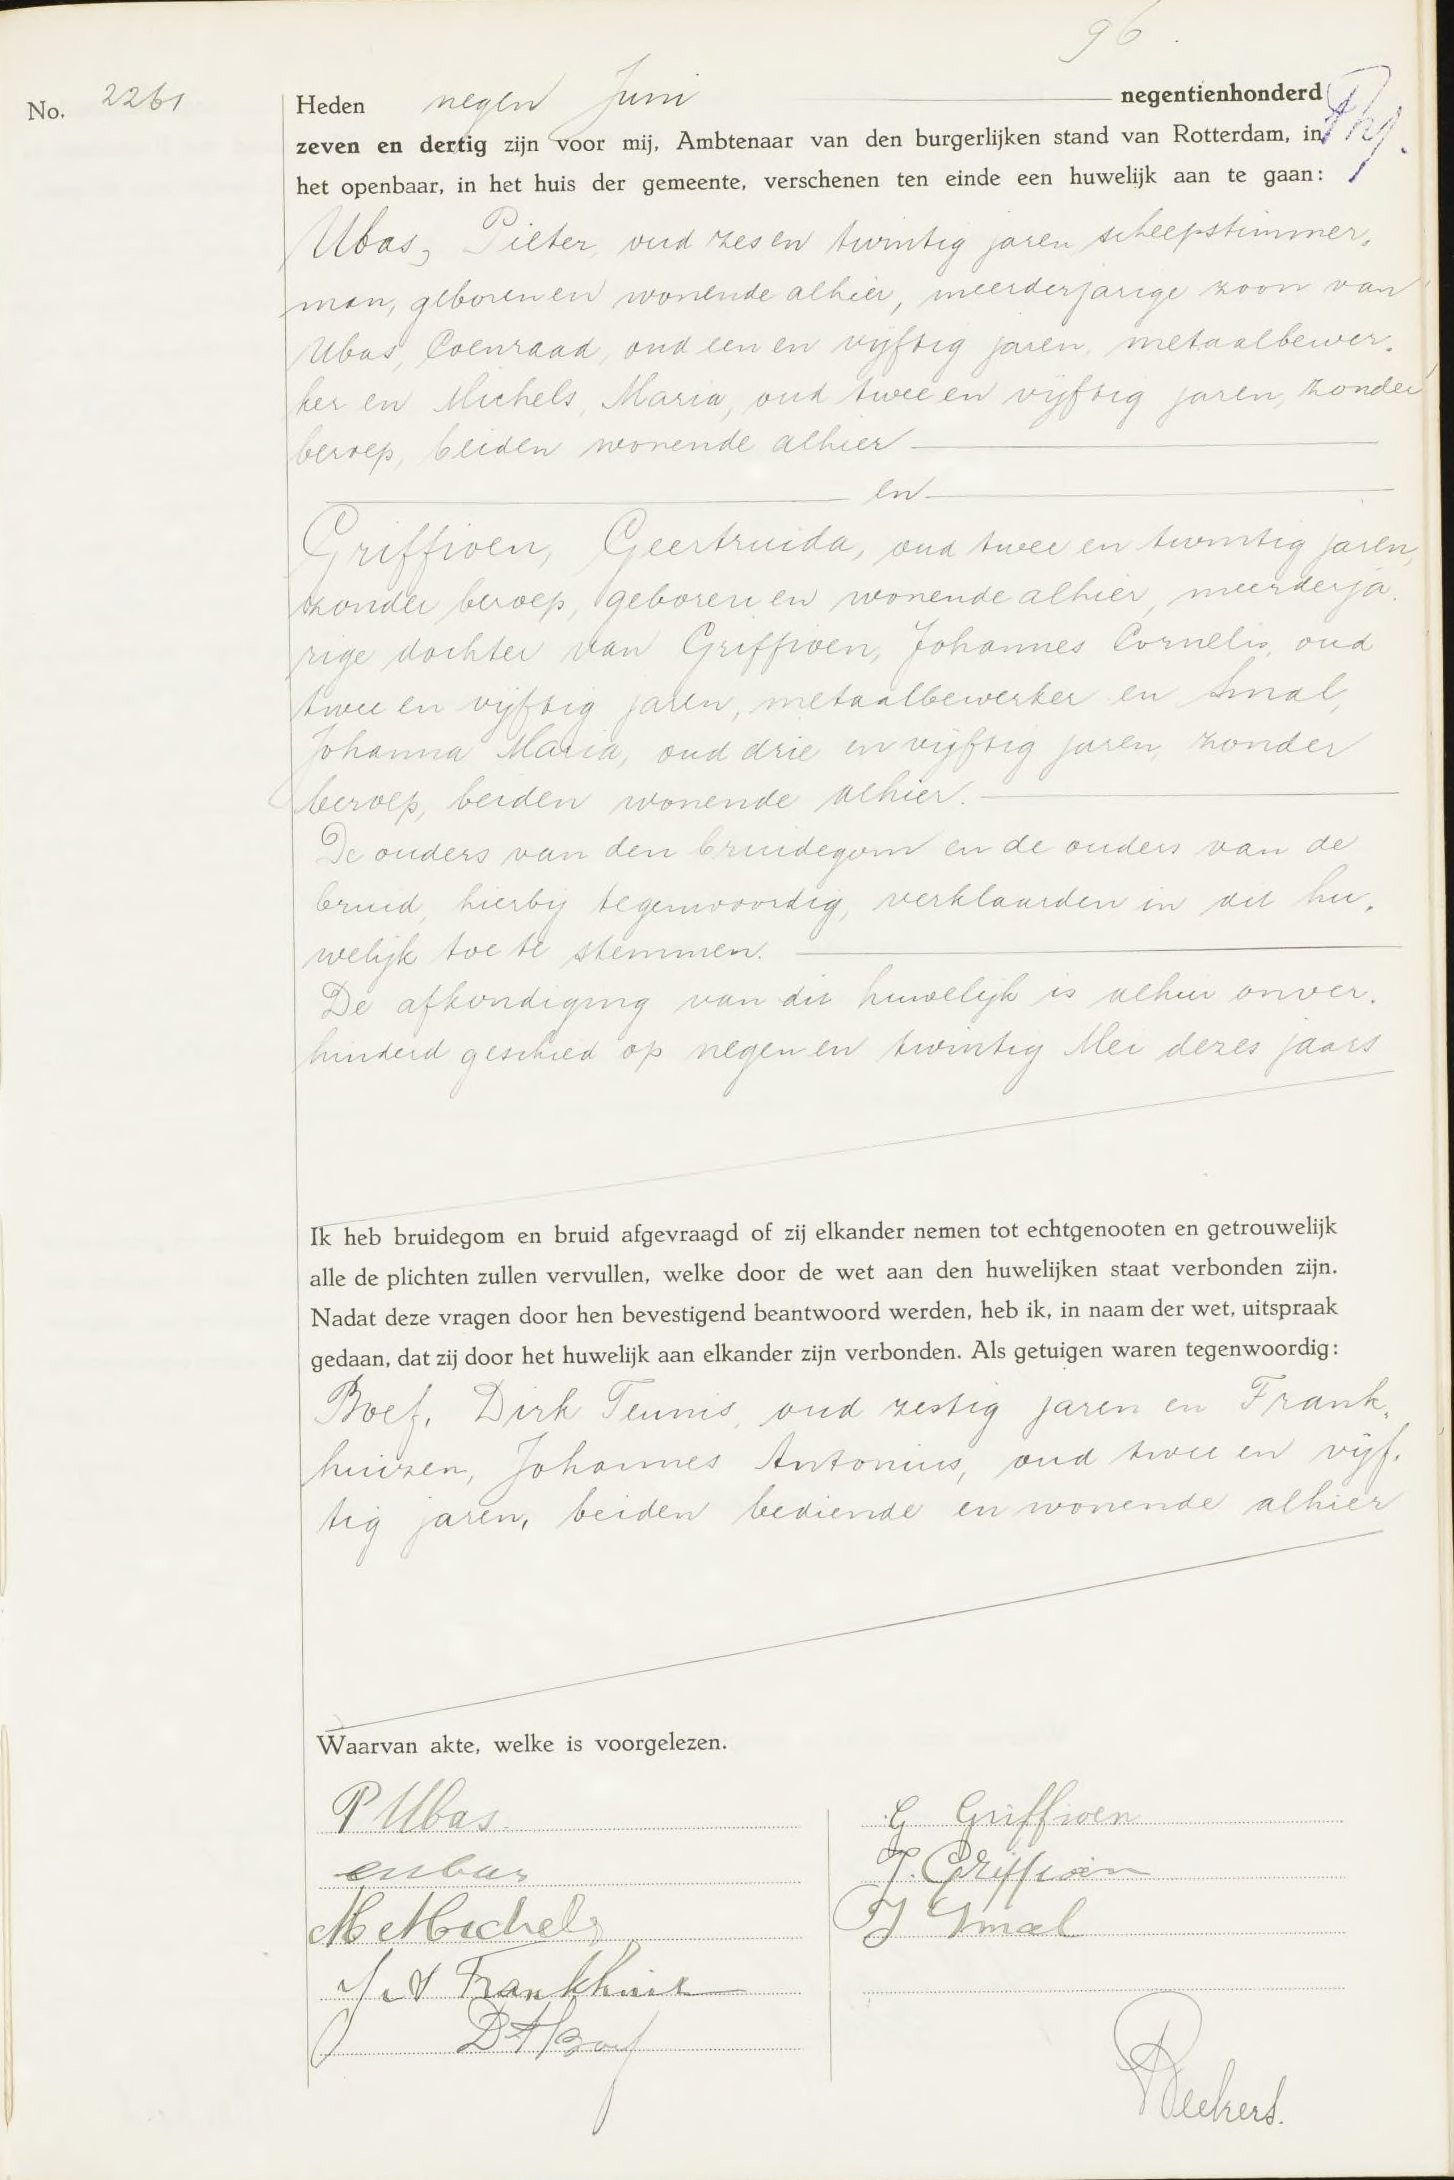 96.
No. 2261
Heden negen Juni negentienhonderd
zeven en dertig zijn voor mij, Ambtenaar van den burgerlijken stand van Rotterdam, in
het openbaar, in het huis der gemeente, verschenen ten einde een huwelijk aan te gaan:
Ubas, Pieter, oud zes en twintig jaren, scheepstimmer-
man, geboren en wonende alhier, meerderjarige zoon van
Ubas, Coenraad, oud een en vijftig jaren, metaalbewer-
ker en Michels, Maria, oud twee en vijftig jaren, zonder
beroep, beiden wonende alhier
en
Griffioen, Geertruida, oud twee en twintig jaren,
zonder beroep, geboren en wonende alhier, meerderja-
rige dochter van Griffioen, Johannes Cornelis, oud
twee en vijftig jaren, metaalbewerker en Smal,
Johanna Maria, oud drie en vijftig jaren, zonder
beroep, beiden wonende alhier.
De ouders van den bruidegom en de ouders van de
bruid, hierbij tegenwoordig, verklaarden in dit hu-
welijk toe te stemmen.
De afkondiging van dit huwelijk is alhier onver-
hinderd geschied op negen en twintig Mei dezes jaars
Ik heb bruidegom en bruid afgevraagd of zij elkander nemen tot echtgenooten en getrouwelijk
alle de plichten zullen vervullen, welke door de wet aan den huwelijken staat verbonden zijn.
Nadat deze vragen door hen bevestigend beantwoord werden, heb ik, in naam der wet, uitspraak
gedaan, dat zij door het huwelijk aan elkander zijn verbonden. Als getuigen waren tegenwoordig:
Boef, Dirk Teunis, oud zestig jaren en Frank-
huizen, Johannes Antonius, oud twee en vijf-
tig jaren, beiden bediende en wonende alhier
Waarvan akte, welke is voorgelezen.
P Ubas
M Michels
J A Frankhuiz
D T Boef
G Griffioen
J. Griffioen
J Smal